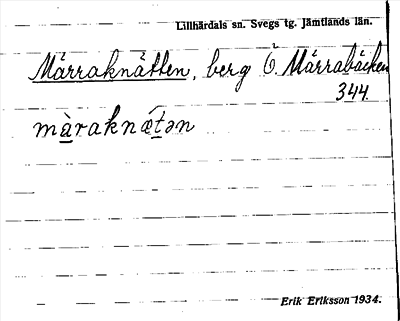 Lillhärdals sn. Svegs tg. Jämtlands län.
Märraknätten, berg Ö. Märrabäcken
344.
màraknǽtən
Erik Eriksson 1934.